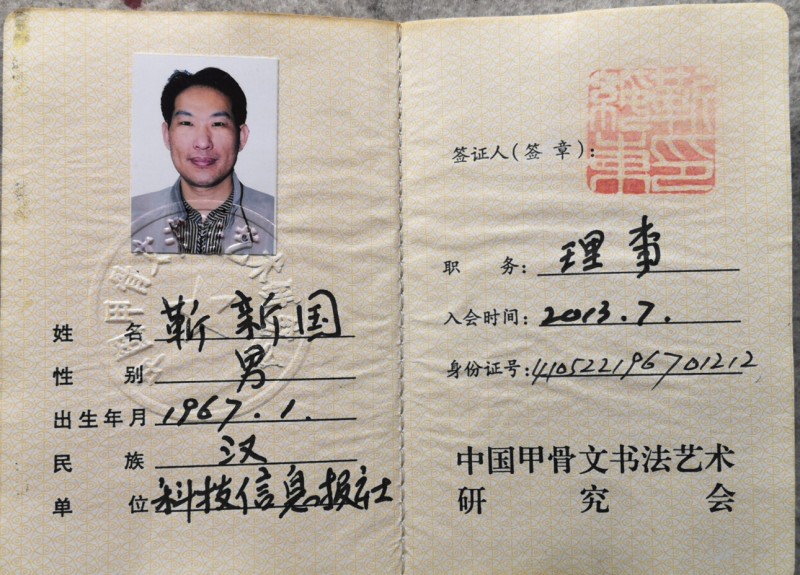 姓 名 靳新国
性 别 男
出生年月 1967.1.
民 族 汉
单 位 科技信息报社
签证人(签 章):
职 务: 理事
入会时间: 2013.7.
身份证号: 410522196701212
中国甲骨文书法艺术
研 究 会